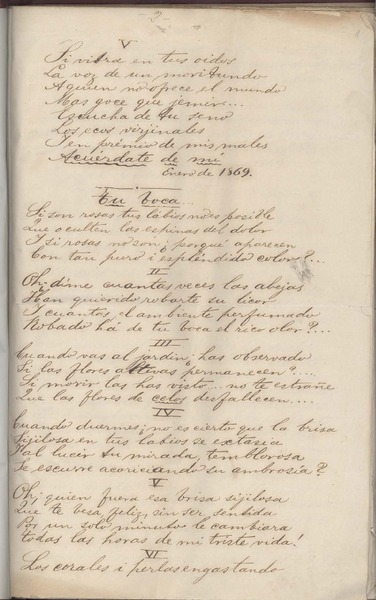 -2-
V
Si vibra en tus oidos
La voz de un moribundo
A quien no ofrece el mundo
Mas goce que jemir....
Escucha de tu seno
Los ecos virjinales
I en prémio de mis males
Acuérdate de mi
Enero de 1869.
Tu boca...
Si son rosas tus lábios no es posible
Que oculten las espinas del dolor
I si rosas no son ¿porqué aparecen
Con tan puro i espléndido color?...
II
Oh, dime cuantas veces las abejas
Han querido robarte su licor
I cuantos el ambiente perfumado
Robado há de tu boca el rico olor?....
III
Cuando vas al jardin ¿has observado
Si las flores altivas permanecen?....
Si morir las has visto... no te estrañe
Que las flores de celos desfallecen....
IV
Cuando duermes ¿no es cierto que la brisa
Sijilosa en tus labios se extasia
I al lucir tu mirada, temblorosa
Se escurre acariciando su ambrosía?
V
Oh, quien fuera esa brisa sijilosa
Que te besa, feliz, sin ser sentida
Por un solo minuto le cambiara
todas las horas de mi triste vida!
VI
Los corales i perlas engastando